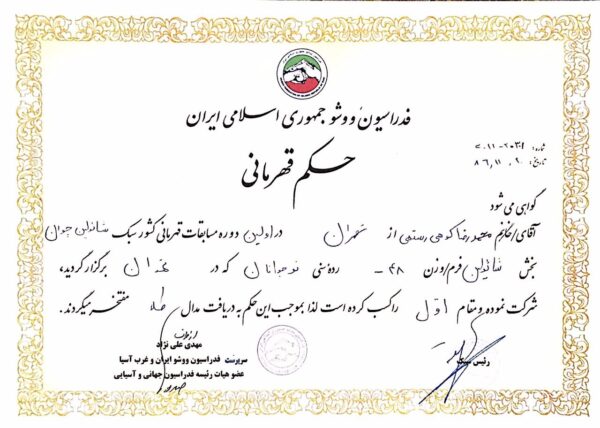 فدراسیون ووشو جمهوری اسلامی ایران
حکم قهرمانی
شماره:
تاریخ: ۸۶,۱۱,۲۰
گواهی می شود
آقای/خانم محمدرضا کوهی رستمی از تهران در اولین دوره مسابقات قهرمانی کشور سبک شائولین جوان
بخش شائولین فرم/وزن ۴۸- رده سنی نوجوانان که در تهران برگزار گردید،
شرکت نموده و مقام اول را کسب کرده است لذا بموجب این حکم به دریافت مدال طلا مفتخر میگردند.
مهدی علی نژاد
سرپرست فدراسیون ووشو ایران و غرب آسیا
عضو هیات رئیسه فدراسیون جهانی و آسیایی
رئیس سبک